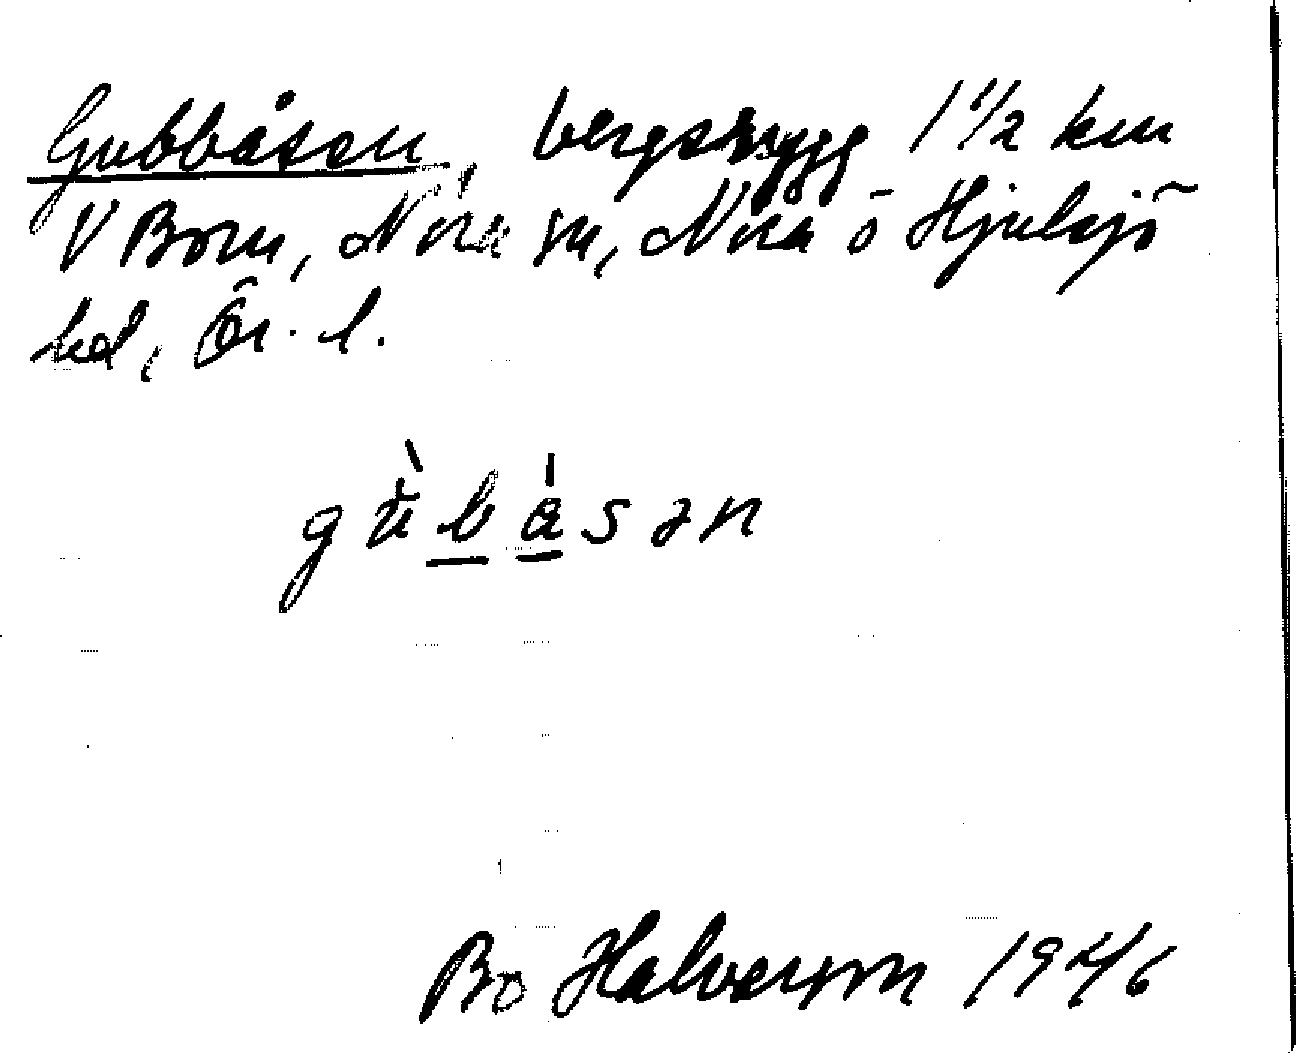 Gubbåsen, bergsrygg 1 1/2 km
V Born, Nora sn, Nora o Hjulsjö
hd, Ör. l.
gùbåsən
Bo Halvarson 1946